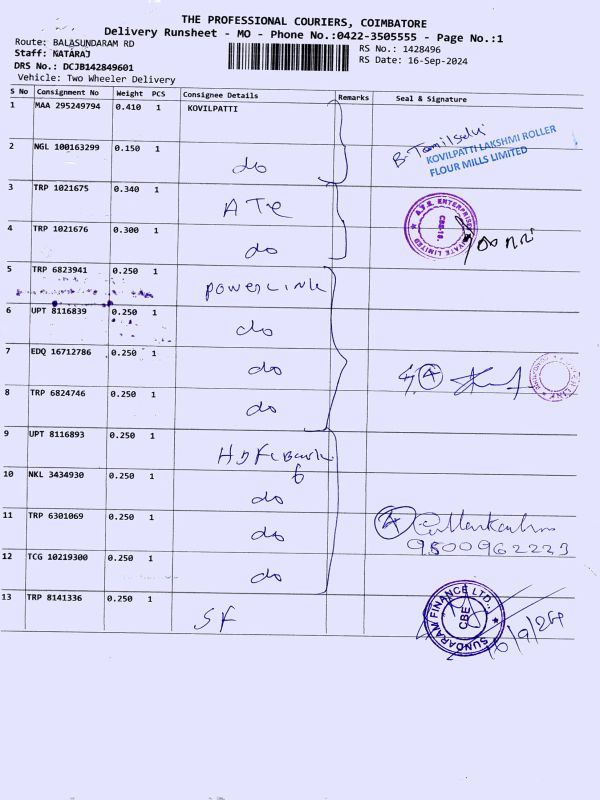 THE PROFESSIONAL COURIERS, COIMBATORE
Delivery Runsheet - MO - Phone No.:0422-3505555 - Page No.:1
Route: BALASUNDARAM RD
Staff: NATARAJ
DRS No.: DCJB142849601
Vehicle: Two Wheeler Delivery
RS No.: 1428496
RS Date: 16-Sep-2024
S No Consignment No Weight PCS Consignee Details Remarks Seal & Signature
1 MAA 295249794 0.410 1 KOVILPATTI
B. Tamilselvi
KOVILPATTI LAKSHMI ROLLER
FLOUR MILLS LIMITED
2 NGL 100163299 0.150 1 do
3 TRP 1021675 0.340 1 ATE
4 TRP 1021676 0.300 1 do
5 TRP 6823941 0.250 1 powerLink
6 UPT 8116839 0.250 1 do
7 EDQ 16712786 0.250 1 do
4
8 TRP 6824746 0.250 1 do
9 UPT 8116893 0.250 1 HDFC Bank
10 NKL 3434930 0.250 1 do
11 TRP 6301069 0.250 1 do
4
9500962223
12 TCG 10219300 0.250 1 do
13 TRP 8141336 0.250 1 SF
SUNDARAM FINANCE LTD.,
CBE
16/9/24